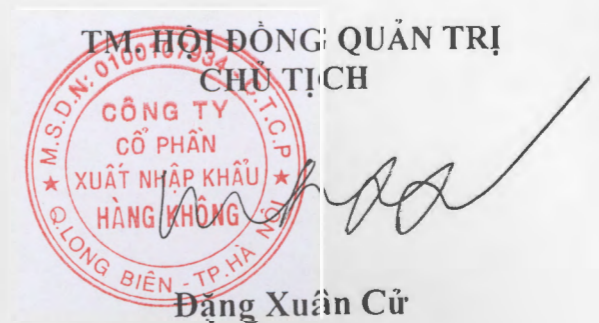 TM. HỘI ĐỒNG QUẢN TRỊ
CHỦ TỊCH
M.S.D.N: 0100107934 - C.T.C.P
CÔNG TY
CỔ PHẦN
XUẤT NHẬP KHẨU
HÀNG KHÔNG
Q.LONG BIÊN - TP.HÀ NỘI
Đặng Xuân Cử